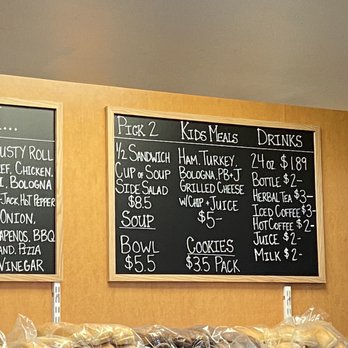 ....
USTY ROLL
EF, CHICKEN,
I, BOLOGNA
-JACK, HOT PEPPER
ONION,
APENOS, BBQ
AND, PIZZA
VINEGAR
PICK 2
1/2 SANDWICH
CUP OF SOUP
SIDE SALAD
$8.5
SOUP
BOWL
$5.5
KIDS MEALS
HAM, TURKEY,
BOLOGNA, PB+J
GRILLED CHEESE
W/CHIP + JUICE
$5-
COOKIES
$3.5 PACK
DRINKS
24 OZ $1.89
BOTTLE $2-
HERBAL TEA $3-
ICED COFFEE $3-
HOT COFFEE $2-
JUICE $2-
MILK $2-